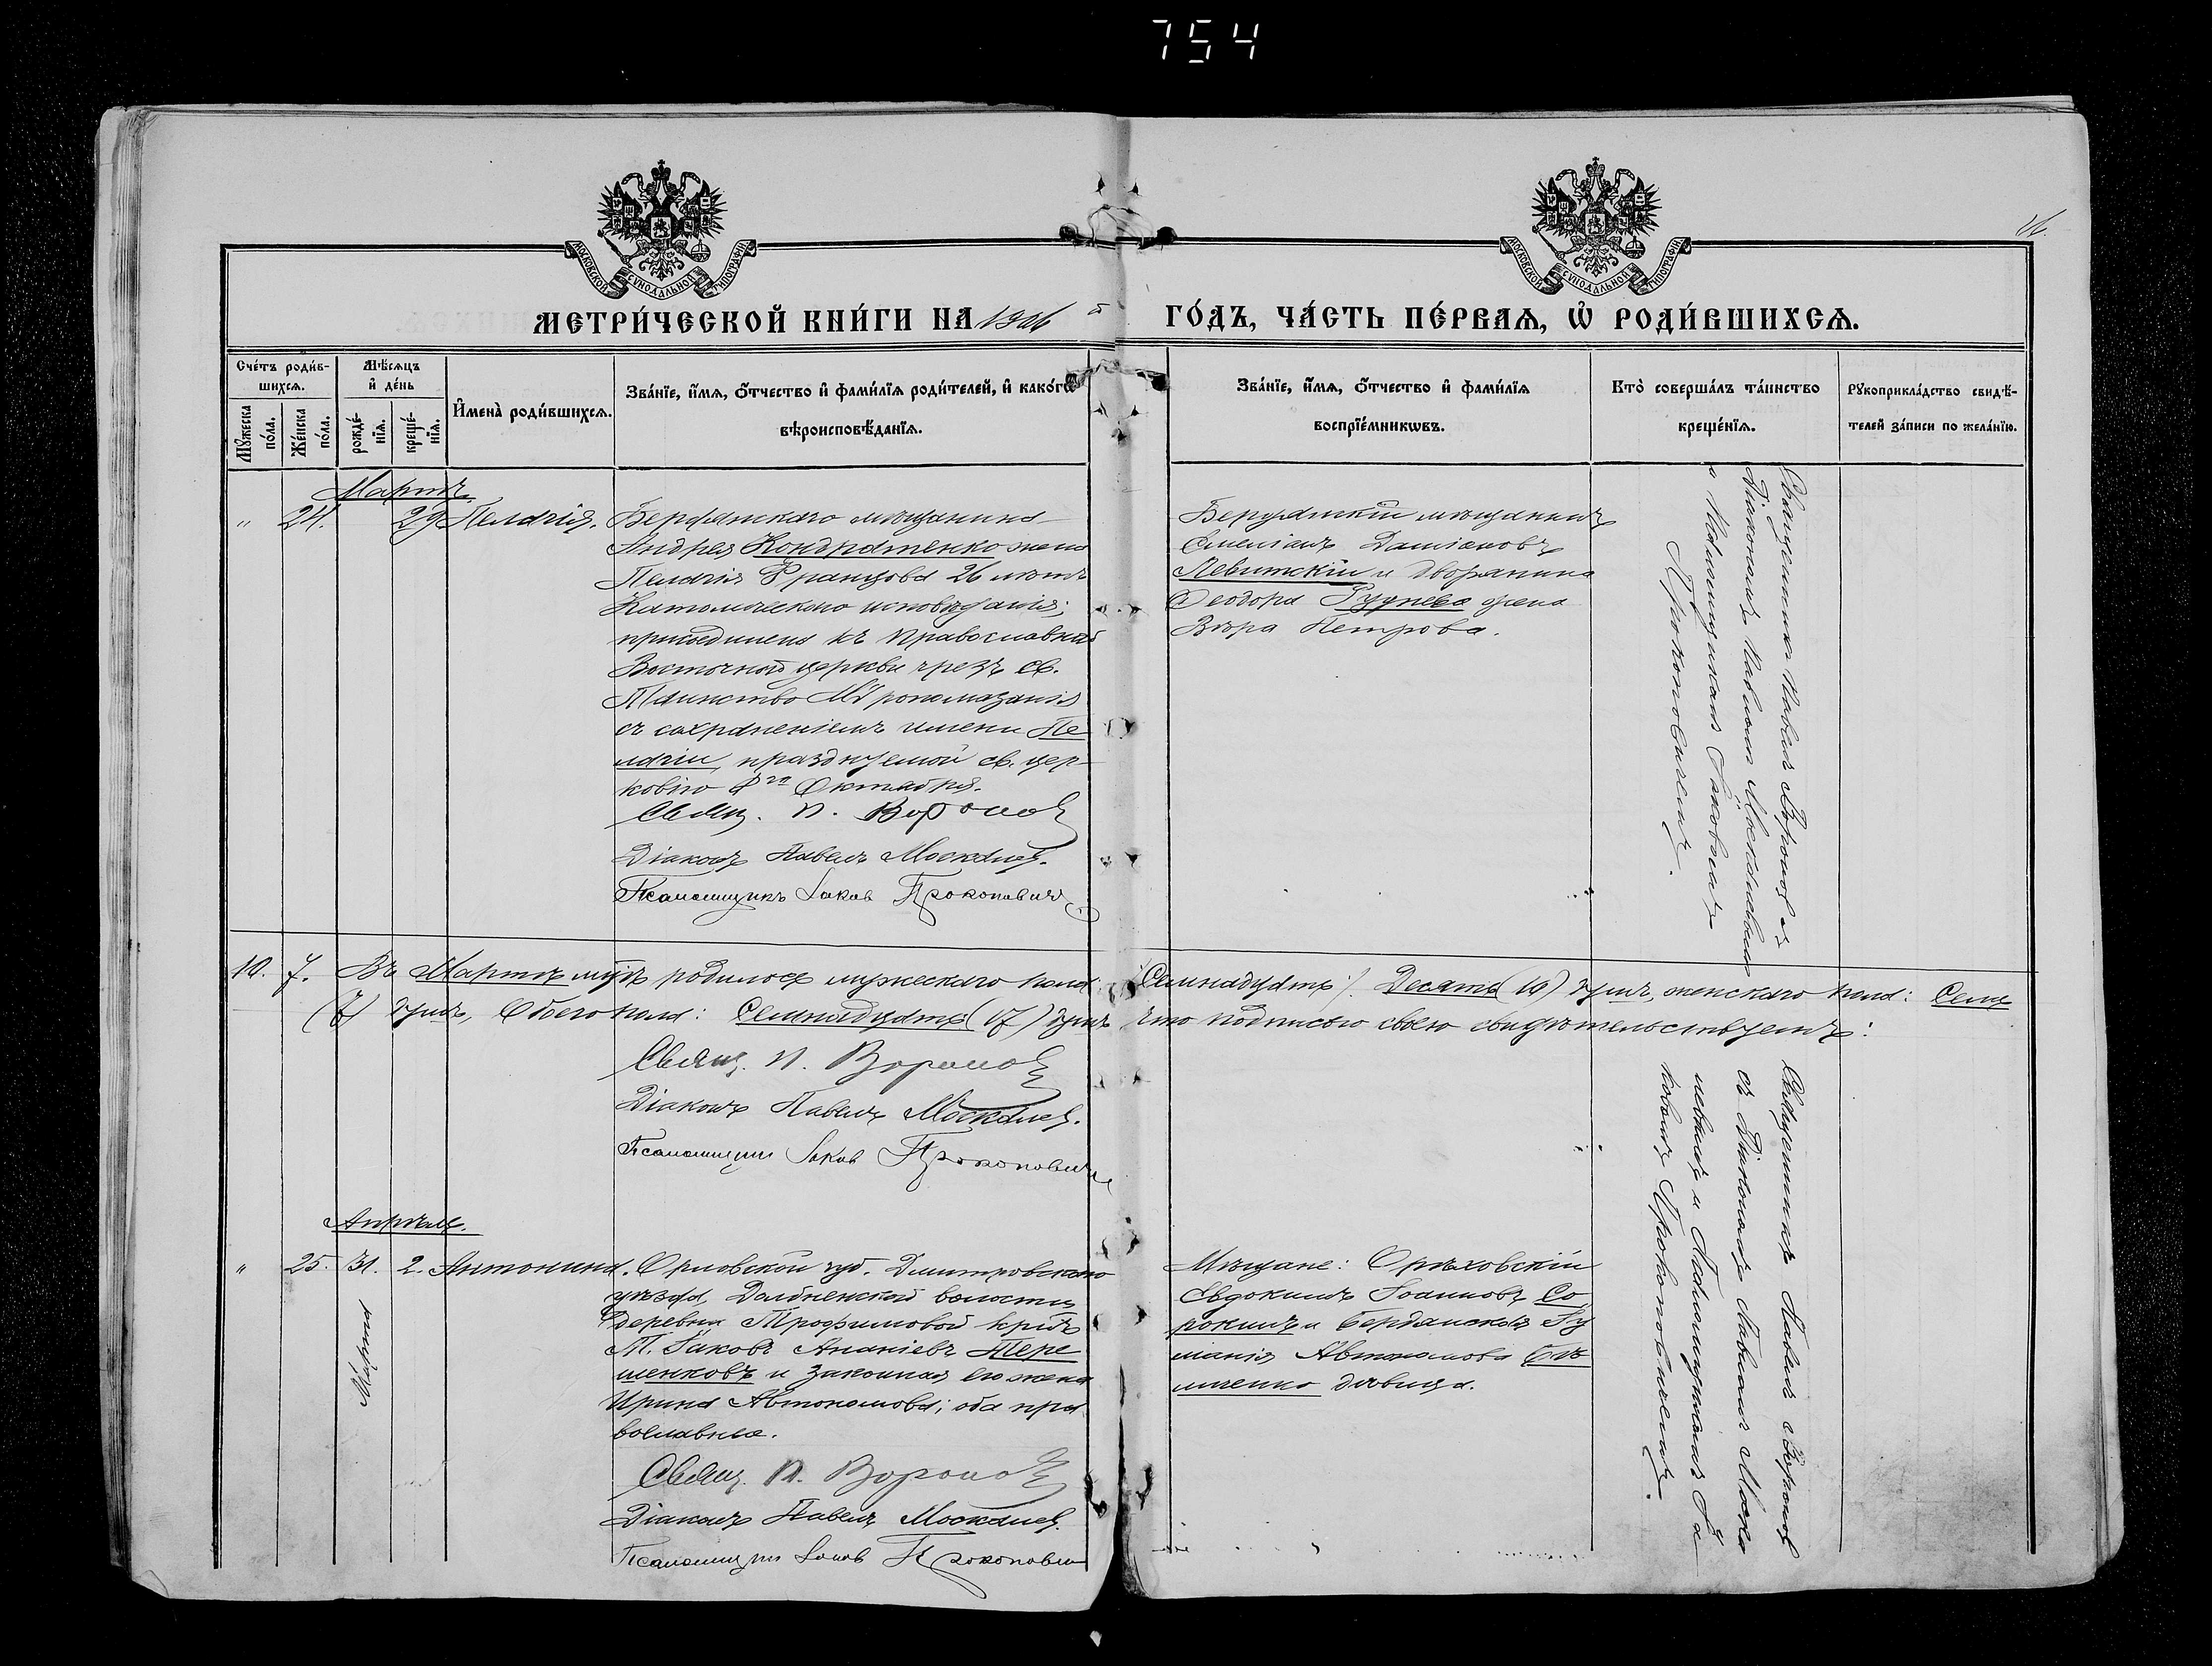 754
16.
МОСКОВСКОЙ СѴНОДАЛЬНОЙ ТИПОГРАФІИ
МОСКОВСКОЙ СѴНОДАЛЬНОЙ ТИПОГРАФІИ
МЕТРИ́ЧЕСКОЙ КНИ́ГИ НА 1906
ГО́ДЪ, ЧА́СТЬ ПЕ́РВАЯ, Ѡ҆ РОДИ́ВШИХСЯ.
Сче́тъ роди́в-
шихся.
Мꙋ́жеска по́ла.
Же́нска по́ла.
Мѣ́сяцъ
и҆ де́нь
рожде́-
нїя.
креще́-
нїя.
И҆мена̀ роди́вшихся.
Зва́нїе, и҆́мя, ѻ҆́тчество и҆ фами́лїя роди́телей, и҆ како́гѡ
вѣроисповѣ́данїя.
Зва́нїе, и҆́мя, ѻ҆́тчество и҆ фами́лїя
воспрїе́мникѡвъ.
Кто̀ соверша́лъ та́инство
креще́нїя.
Рꙋкоприкла́дство свидѣ́-
телей за́писи по жела́нїю.
Мартъ.
" 24. 29 Пелагія.
Бердянскаго мѣщанина
Андрея Кондратенко жена
Пелагія Францова 26 лѣтъ
Католическаго исповѣданія;
присоединена къ Православной
Восточной церкви чрезъ св.
Таинство Мѵропомазанія
съ сохраненіемъ имени Пе
лагіи, празднуемой св. цер-
ковію 8го Октября.
Свящ. П. Вороновъ
Діаконъ Павелъ Москалев.
Псаломщикъ Іаков Прокопович
Бердянскій мѣщанинъ
Симеонъ Даміановъ
Левитскій и дворянина
Ѳеодора Гуднева жена
Вѣра Петрова.
Священникъ Павелъ Вороновъ съ
Діакономъ Павломъ Москалевымъ
и Псаломщикомъ Іаковомъ
Прокоповичемъ.
10. 7. Въ Мартѣ мцѣ родилось мужескаго пола (Семнадцать). Десять (10) душъ, женскаго пола: Семь
(7) душъ, Обоего пола: Семнадцать (17) душъ что подписью своею свидѣтельствуемъ:
Свящ. П. Вороновъ
Діаконъ Павелъ Москалев.
Псаломщик Іаков Прокопович
Апрѣль.
" 25. 31. 2. Антонина.
Марта
Орловской губ. Дмитровскаго
уѣзда, Долбенкской волости
деревни Трофимовой крестъ
Т. Іаковъ Ананіевъ Тере
шенковъ и законная его жена
Ирина Автономова; оба пра
вославные.
Свящ. П. Вороновъ
Діаконъ Павелъ Москалев.
Псаломщик Іаков Прокопович
Мѣщане: Орѣховскій
Евдокимъ Іоанновъ Со
рокинъ и Бердянская Іу
ліанія Автономова
дѣвица.
Священникъ Павелъ Вороновъ
съ Діакономъ Павломъ Моска
левымъ и Псаломщикомъ Іа
ковомъ Прокоповичемъ.